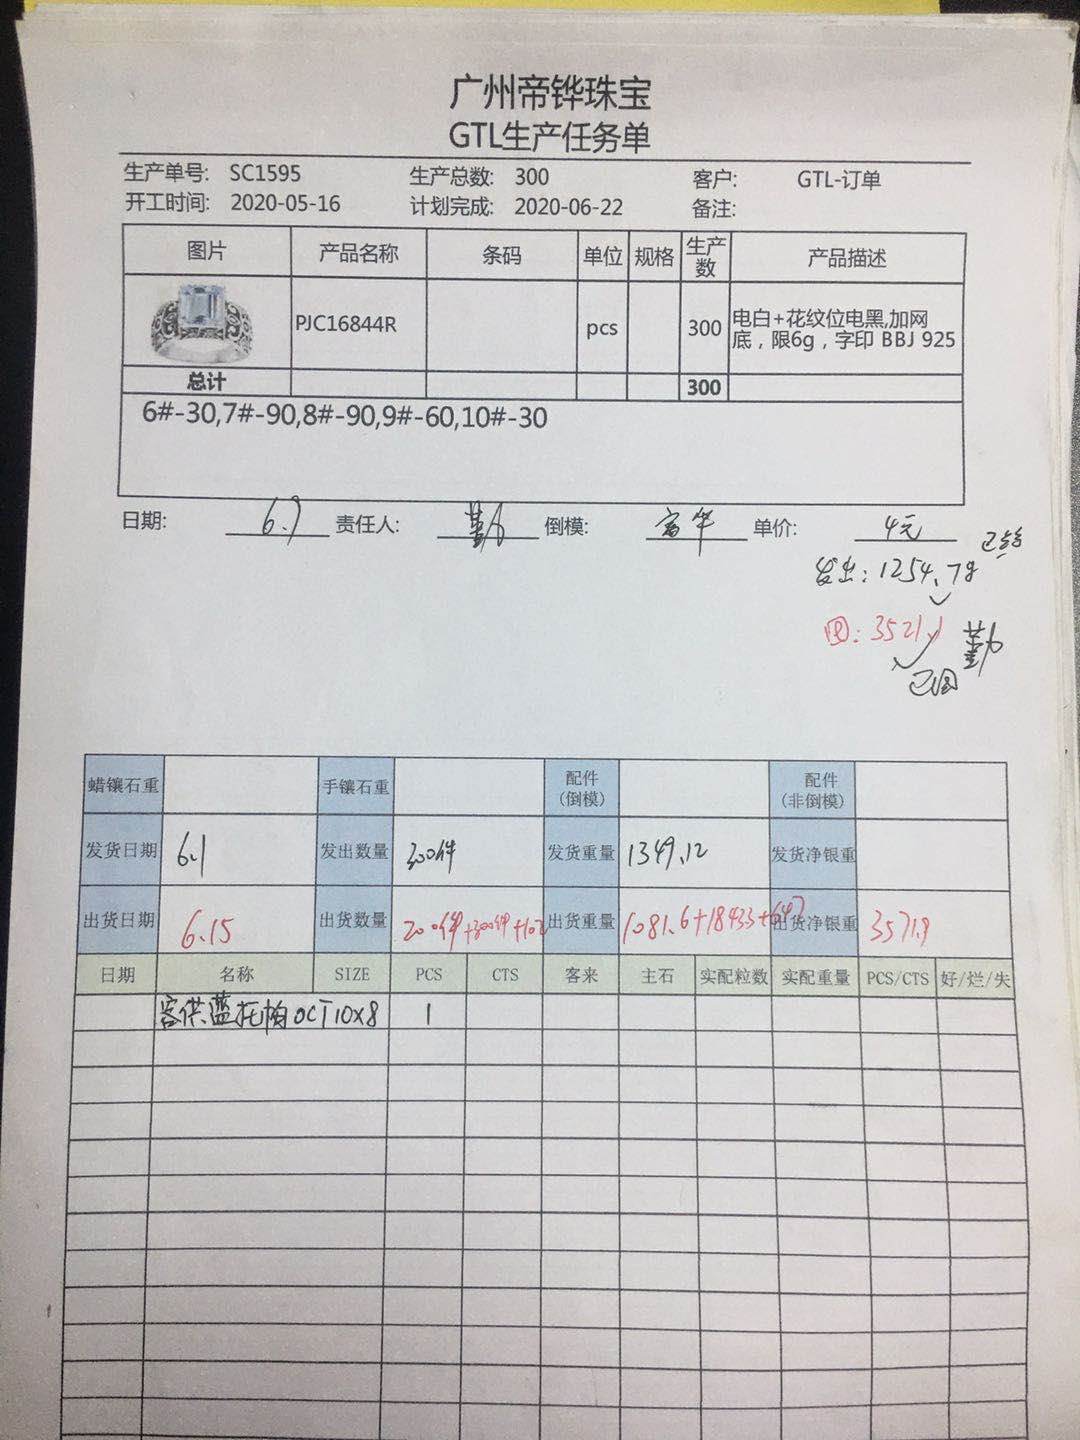 广州帝铧珠宝
GTL生产任务单
生产单号: SC1595 生产总数: 300 客户: GTL-订单
开工时间: 2020-05-16 计划完成: 2020-06-22 备注:
图片 产品名称 条码 单位 规格 生产数 产品描述
PJC16844R pcs 300 电白+花纹位电黑,加网底，限6g，字印 BBJ 925
总计 300
6#-30,7#-90,8#-90,9#-60,10#-30
日期: 责任人: 勤 倒模: 富华 单价: 4元
发出: 1254.7g
回: 3521.1 勤
已回
蜡镶石重 手镶石重 配件(倒模) 配件(非倒模)
发货日期 6.1 发出数量 300件 发货重量 1349.12 发货净银重
出货日期 6.15 出货数量 200件+300件+102 出货重量 1081.6+1843.3+647 出货净银重 3571.9
日期 名称 SIZE PCS CTS 客来 主石 实配粒数 实配重量 PCS/CTS 好/烂/失
客供蓝托帕OCT10x8 1